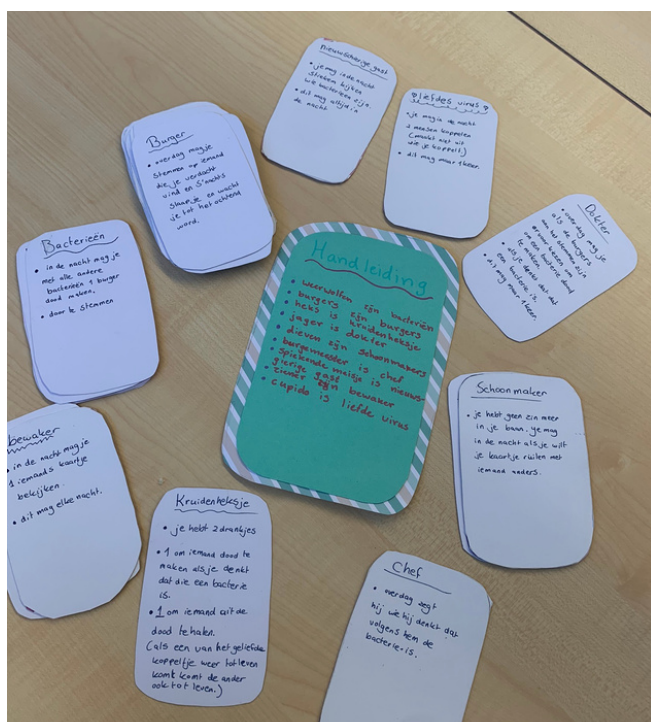 nieuwschierige gast
• je mag in de nacht
stiekem kijken
wie bacterieën zijn.
• dit mag altijd in
de nacht
liefdes virus
• je mag in de nacht
2 mensen koppelen
(maakt niet uit
wie je koppelt)
• dit mag maar 1 keer.
Burger
• overdag mag je
stemmen op iemand
die je verdacht
vind en S'nachts
slaap je en wacht
je tot het ochtend
word.
Dokter
• overdag mag je
als de burgers
aan het stemmen zijn
ervoor kiezen om
om een bacterie dood
te maken.
• als je denkt dat dat
een bacterie is.
• dit mag maar 1 keer.
Bacterieën
• in de nacht mag je
met alle andere
bacterieën 1 burger
dood maken,
• door te stemmen
Handleiding
• weerwolfen zijn bacteriën
• burgers zijn burgers
• heks is kruidenheksje
• jager is dokter
• dieven zijn schoonmakers
• burgemeester is chef
• spiekende meisje is nieuws-
gierige gast
• ziener zijn bewaker
• cupido is liefde virus
Schoonmaker
• je hebt geen zin meer
in je baan. je mag
in de nacht als je wilt
je kaartje ruilen met
iemand anders.
bewaker
• in de nacht mag je
1 iemands kaartje
bekijken.
• dit mag elke nacht.
Kruidenheksje
• je hebt 2 drankjes
• 1 om iemand dood te
maken als je denkt
dat die een bacterie
is.
• 1 om iemand uit de
dood te halen.
(als een van het geliefde
koppeltje weer tot leven
komt komt de ander
ook tot leven.)
Chef
• overdag zegt
hij wie hij denkt dat
volgens hem de
bacterie is.